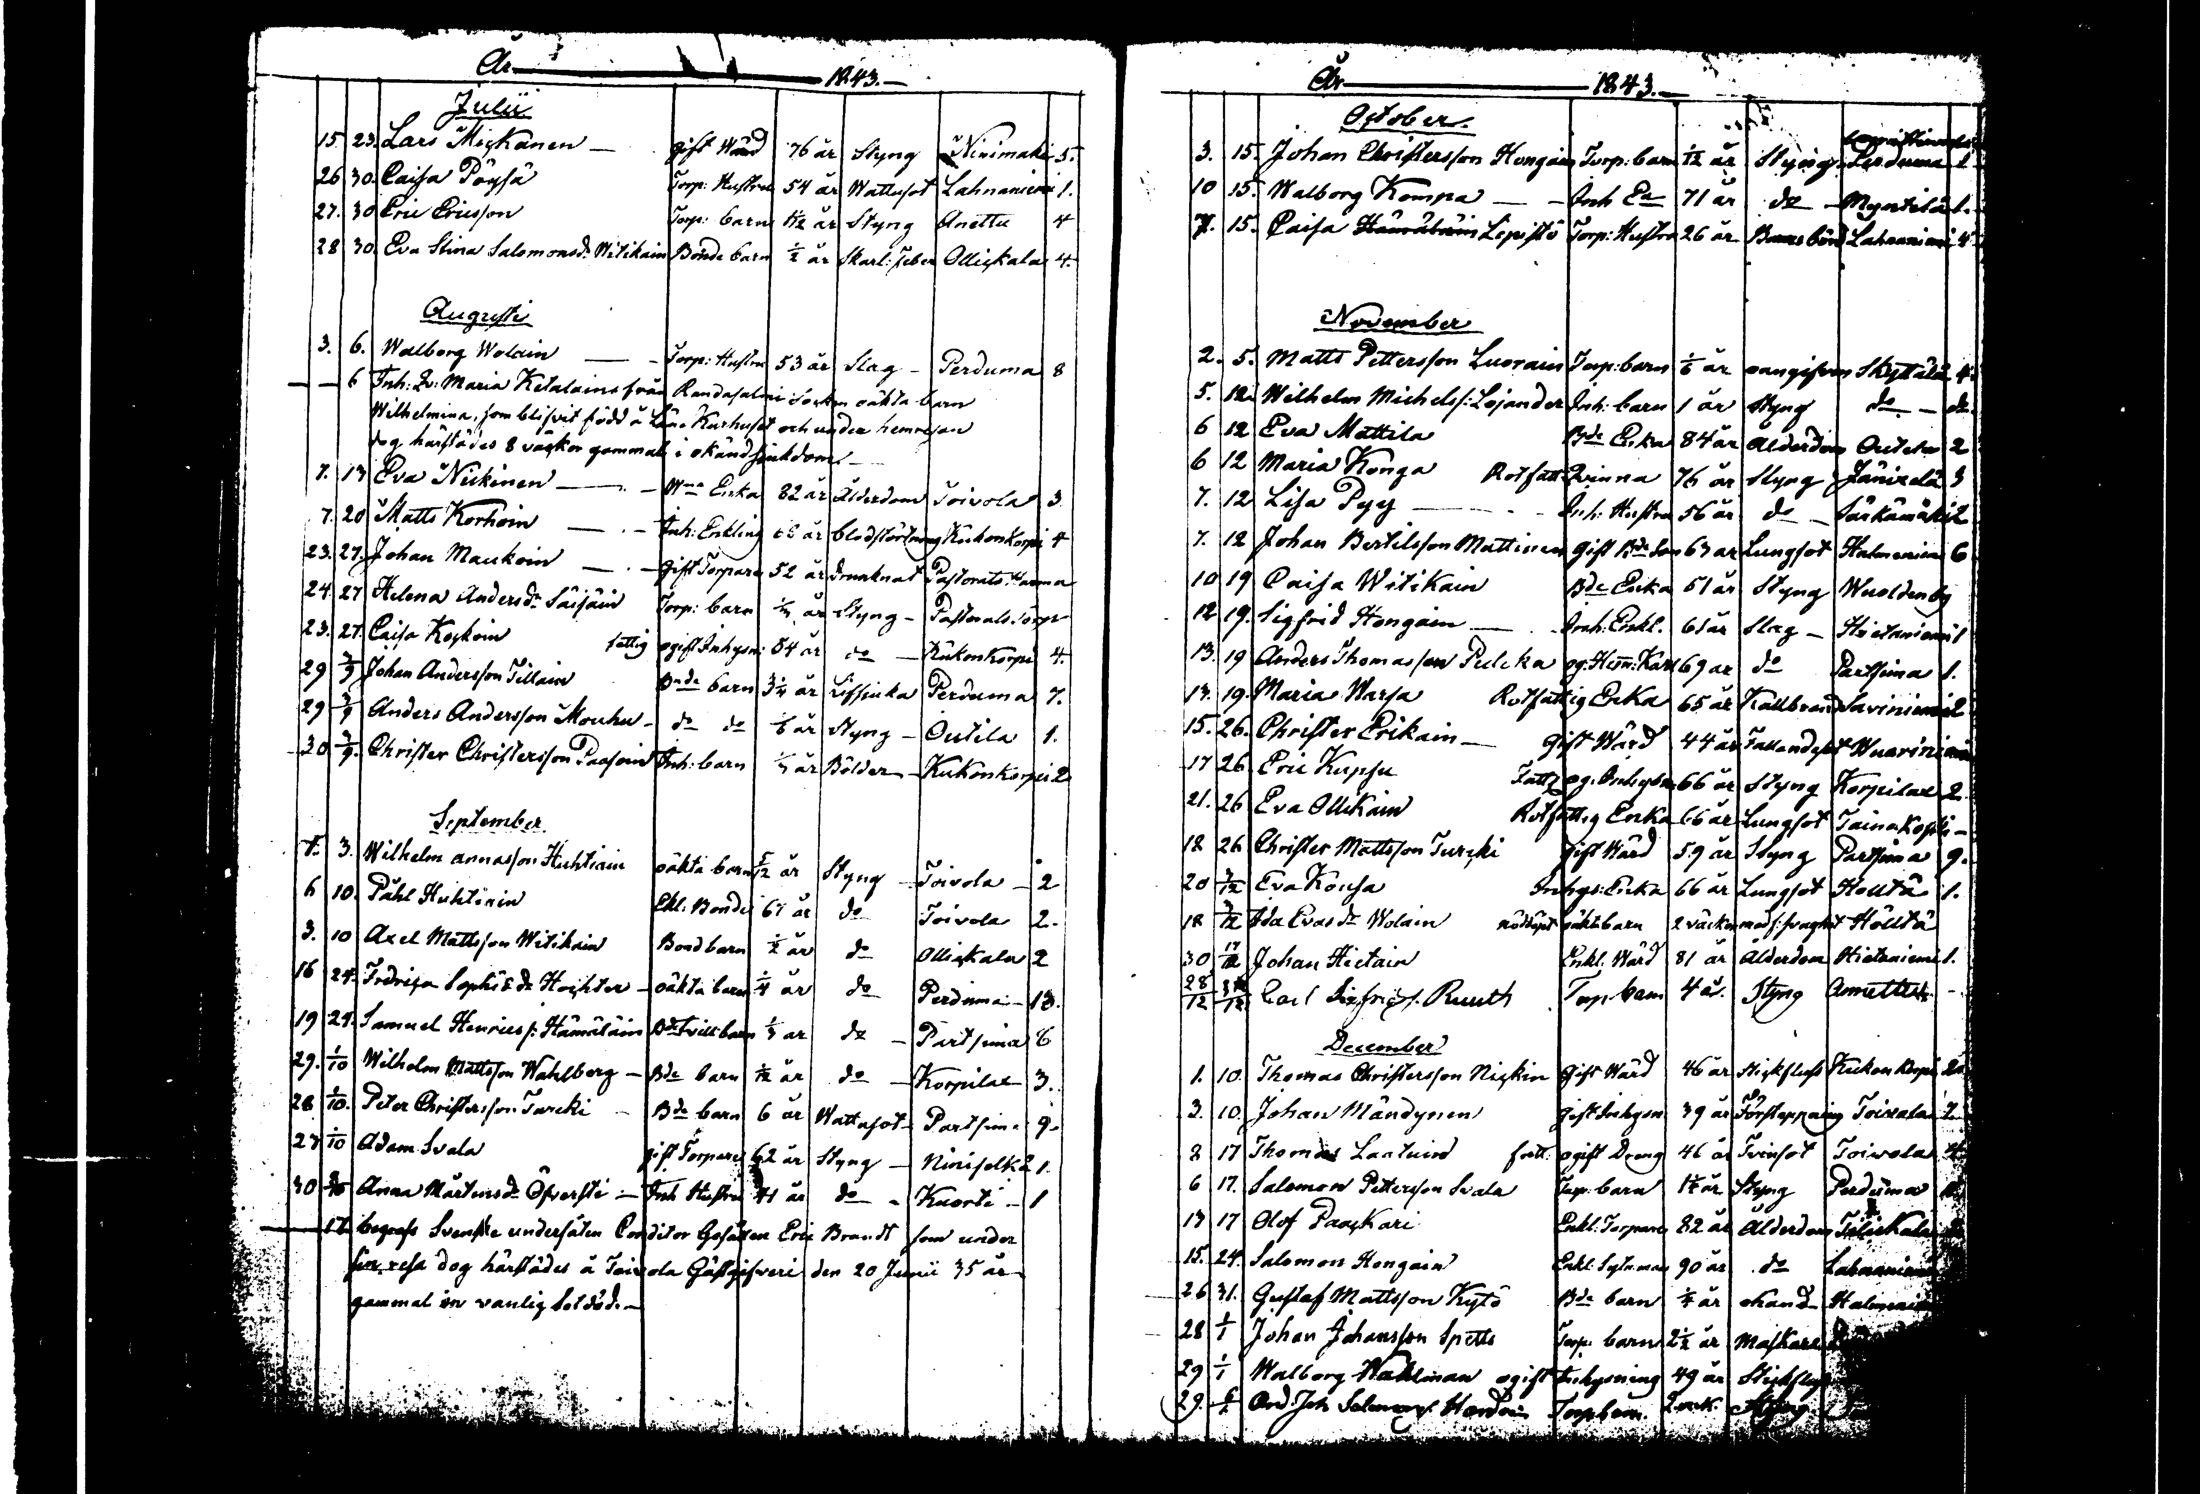 År 1843.
Julii
15. 23. Lars Mickanen gift Wärd 76 år Styng Niinimäki 5.
26 30. Caisa Pöysä Torp: Hustru 54 år Wattusot Lahnaniemi 1.
27. 30 Eric Ericsson Torp: barn år Styng Anettu 4
28 30. Eva Stina Salomonsdr Witikain Bonde barn ½ år Skarl: feber Ollickala 4.
Augusti
3. 6. Walborg Wolain Torp: Hustru 53 år Slag Perduma 8
6 Inh: Qv: Maria Ketolains från Randasalmi Socken oäkta barn
Wilhelmina, som blifvit född å Läns Kurhuset och under hemresan
dog härstädes 8 veckor gammal i okänd sjukdom.
7. 13 Eva Nickinen Enka 82 år Ålderdom Toivola 3
7. 20 Matts Korhoin Inh: Enkling år blodstörtning Kukonkorpi 4
23. 27. Johan Maukoin gift Torpare 52 år drunknat Pastorats
24. 27 Helena Andersdr Säisäin Torp: barn år Styng Pastorats Torp
23. 27. Caisa Kockoin fattig ogift Inhysn: 54 år do Kukonkorpi 4.
29 3/9 Johan Andersson Tillain Bnde barn 3¼ år Lifsjuka Perduma 7.
29 3/9 Anders Andersson Mouhu do do år Styng Outila 1.
30 3/9. Christer Christersson Paasoin Inh: barn år Bölder Kukonkorpi 2
September
1. 3. Wilhelm Annasson Huhtiain oäkta barn 5/12 år Styng Toivola 2
6 10. Påhl Huhtiain Ekl: Bonde 67 år do Toivola 2.
3. 10 Axel Mattsson Witikain Bond barn ½ år do Ollickala 2
16 24. Fredrica Sophi Hochter oäkta barn ¼ år do Perduma 13.
19 24. Samuel Henrics s: Hämäläin Bde Tvill: barn år do Partsima 6
29. 1/10 Wilhelm Mattsson Wahlberg Bde barn år do Korpilax 3.
28 1/10. Peter Christersson Turcki Bde barn 6 år Wattusot Partsim 9.
27 1/10 Adam Svala gift Torpare 62 år Styng Niniselkä 1
30 Anna Mårtensdr Öfversti Inh Hustru 41 år do Kuorti 1
17. begrofs Svenske undersåten Conditor Gesällen Eric Brandt som under
sin resa dog härstädes å Toivola Gästgifveri den 20 Junii 35 år
gammal en vanlig sotdöd.
År 1843.
October.
3. 15. Johan Christersson Hongain Torp: barn år Styng Perduma 1
10 15. Walborg Kompa Inh Ea 71 år do Myntilä 1.
7. 15. Caisa Hämäläin Lepistö Torp: Hustru 26 år Barnsbörd Lahnaniemi 4
November
2. 5. Matts Pettersson Luorain Torp: barn år oangifven Skyttälä 4
5. 12. Wilhelm Michelss: Lojander Inh: barn 1 år Styng do do
6 12 Eva Mattila Bde Enka 84 år Ålderdom Outila 2
6 12 Maria Konga Rotfatt: Qvinna 76 år Styng Jänixelä 3
7. 12 Lisa Pyy Inh: Hustru 56 år do Särkämäki 2
7. 12 Johan Bertilsson Mattinen gift Bde Son 63 år Lungsot Halmeniemi 6
10 19 Caisa Witikain Bde Enka 61 år Styng Wuoldenby
12 19. Sigfrid Hongain Inh: Enkl. 61 år Slag Hietaniemi 1
13. 19 Anders Thomasson Pulcka og: Hem: Karl 69 år do Partsima 1.
13. 19. Maria Warsa Rotfattig Enka 65 år Kallbrand Savinimi 2
15. 26. Christer Erikain Gift Wärd 44 år Fallandsot
17 26 Eric Kupsu Fattg og: Inhyses 66 år Styng Korpilax 2
21. 26 Eva Ollikain Rotfattig Enka 66 år Lungsot Tainakoski
18 26 Christer Mattsson Turcki gift Wärd 59 år Styng Partsima 9.
20 3/12 Eva Konsa Inhys: Enka 66 år Lungsot Hölltä 1.
18 3/12 Ida Evasdr Wolain nöddöpt oäkta barn 2 veckor Hölltä
30 17/12 Johan Hietain Enkl. Wärd 81 år Ålderdom Hietaniemi 1.
28/12 Carl Sigfrids s. Ruuth Torp barn 4 år. Styng Annettu
December
1. 10. Thomas Christersson Nickin Gift Wärd 46 år Stickfluss Kukonkorpi
3. 10. Johan Mändynen gift Inhysn 39 år Förstoppning Toivola 2
8 17 Thomas Laatuin fatt: ogift Dreng 46 år Tvinsot Toivola 4
6 17. Salomon Pettersson Svala Torp: barn år Styng Perduma
13 17 Olof Paackari Enkl: Torpare 82 år Ålderdom
15. 24. Salomon Hongain Enkl: Sytn:man 90 år do Lahnaniemi
26 31. Gustaf Mattsson Kytö Bde barn ¼ år okänd Halmeniemi
28 1/1 Johan Johansson Spetts Torp: barn 2½ år Maskar
29 1/1 Walborg Wahlman ogift Inhysning 49 år Stickfluss
29. And. Joh Salomons. Torp barn. Styng